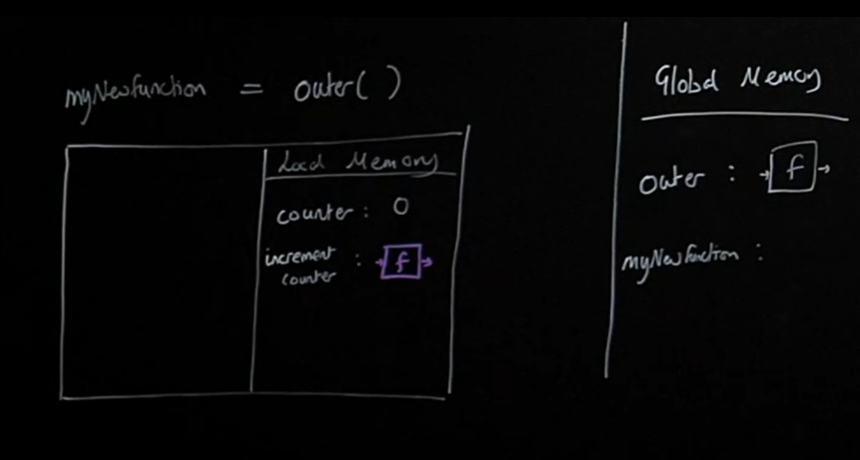 myNewfunction = outer( )
Local Memory
counter : 0
increment
counter : f
Global Memory
outer : f
myNewfunction :